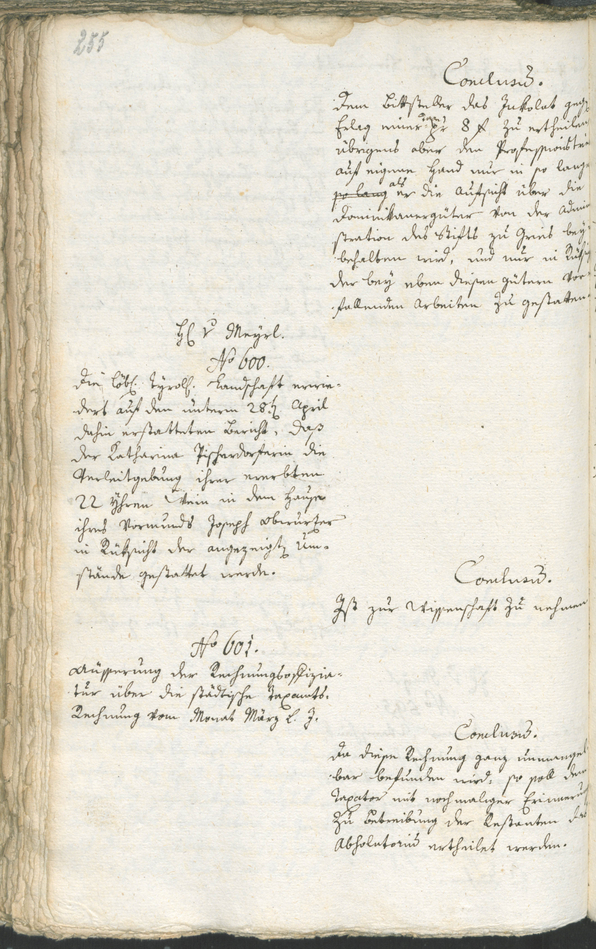 255
Conclusum.
Dem Bittsteller das Inkolat gegen
Erlag einer Taxe pr 8 f zu ertheilen
übrigens aber den Professionsten
auf eigene Hand nur in so lange
so lang als er die Aufsicht über die
Dominikanergüter von der Admini
stration des Stifts zu Gries bey
behalten wird, und nur in Rüksicht
der bey eben diesen gütern vor
fallenden Arbeiten zu gestatten.
H: v Meyrl.
No 600.
Die löbl. Tyroll. Landschaft erwie-
dert auf den unterm 28t April
dahin erstatteten Bericht, daß
der Katharina Pischerdorferin die
Verleitgebung ihrer ererbten
22 Yhren Wein in dem Hause
ihres Vormunds Joseph Oberwurter
in Rüksicht der angezeigten Um-
stände gestattet werde.
Conclusum.
Ist zur Wissenschaft zu nehmen
No 601.
Äusserung der Rechnungsoffizia-
tur über die städtische Taxamts-
Rechnung vom Monat März l. J.
Conclusum.
Da diese Rechnung ganz unmangel
bar befunden wird, so soll dem
Taxator mit nochmaliger Erinnerung
zu Betreibung der Restanten das
Absolutorium ertheilet werden.